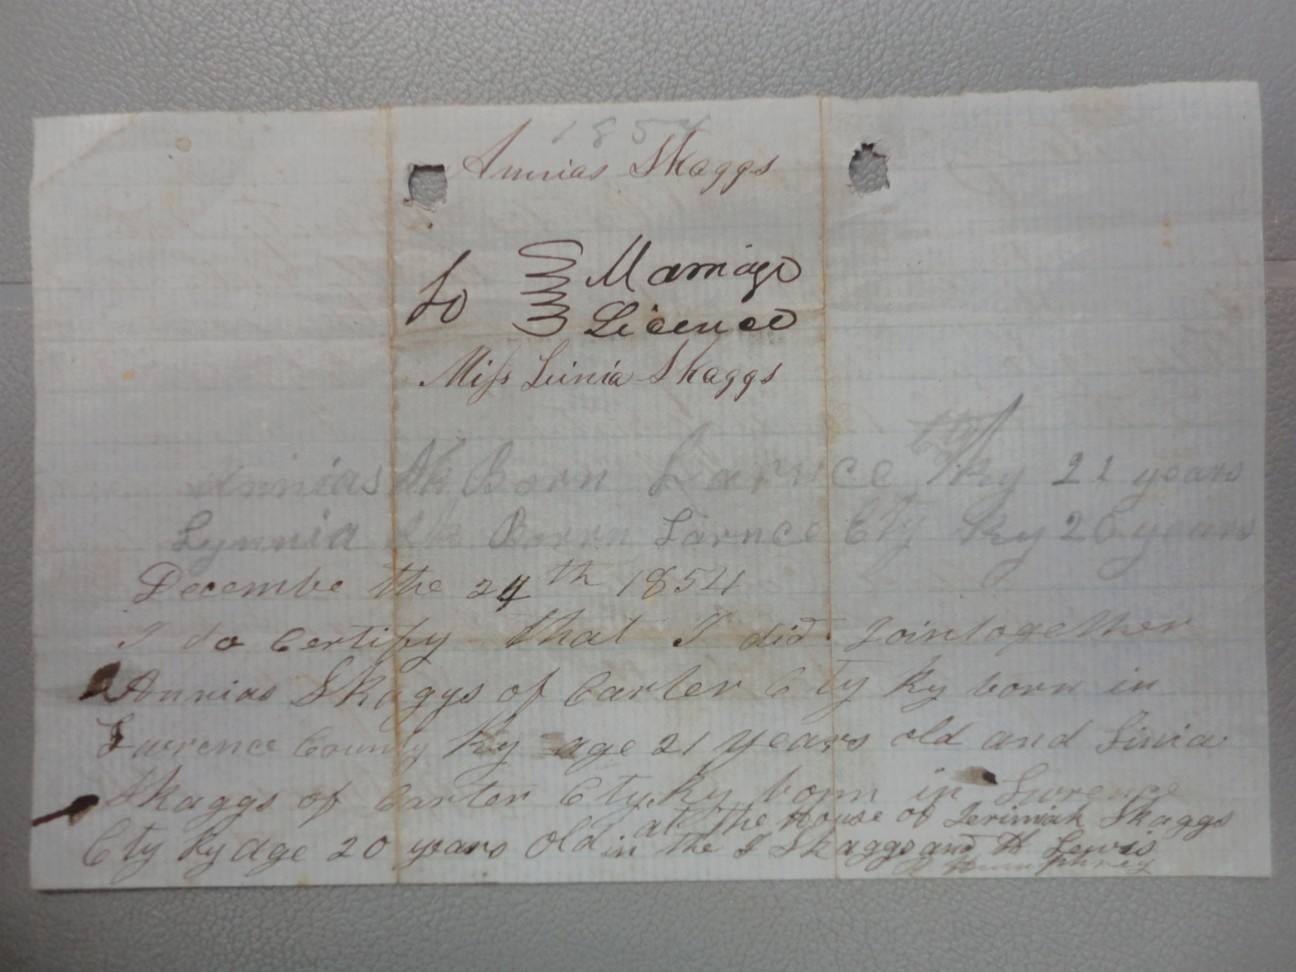 1854
Annias Skaggs
to Marriage
Licence
Miss Linia Skaggs
Annias Sk Born Larnce Cty Ky 21 years
Lynnia Sk Born Larnce Cty Ky 20 years
Decembe the 24th 1854
I do Certify that I did Jointogether
Annias Skaggs of Carter Cty Ky born in
Lawrence County Ky age 21 years old and Linia
Skaggs of Carter Cty Ky born in Lwrence
at the House of Jerimiah Skaggs
Cty Ky age 20 years Old in the J Skaggs and H Lewis
Humphrey